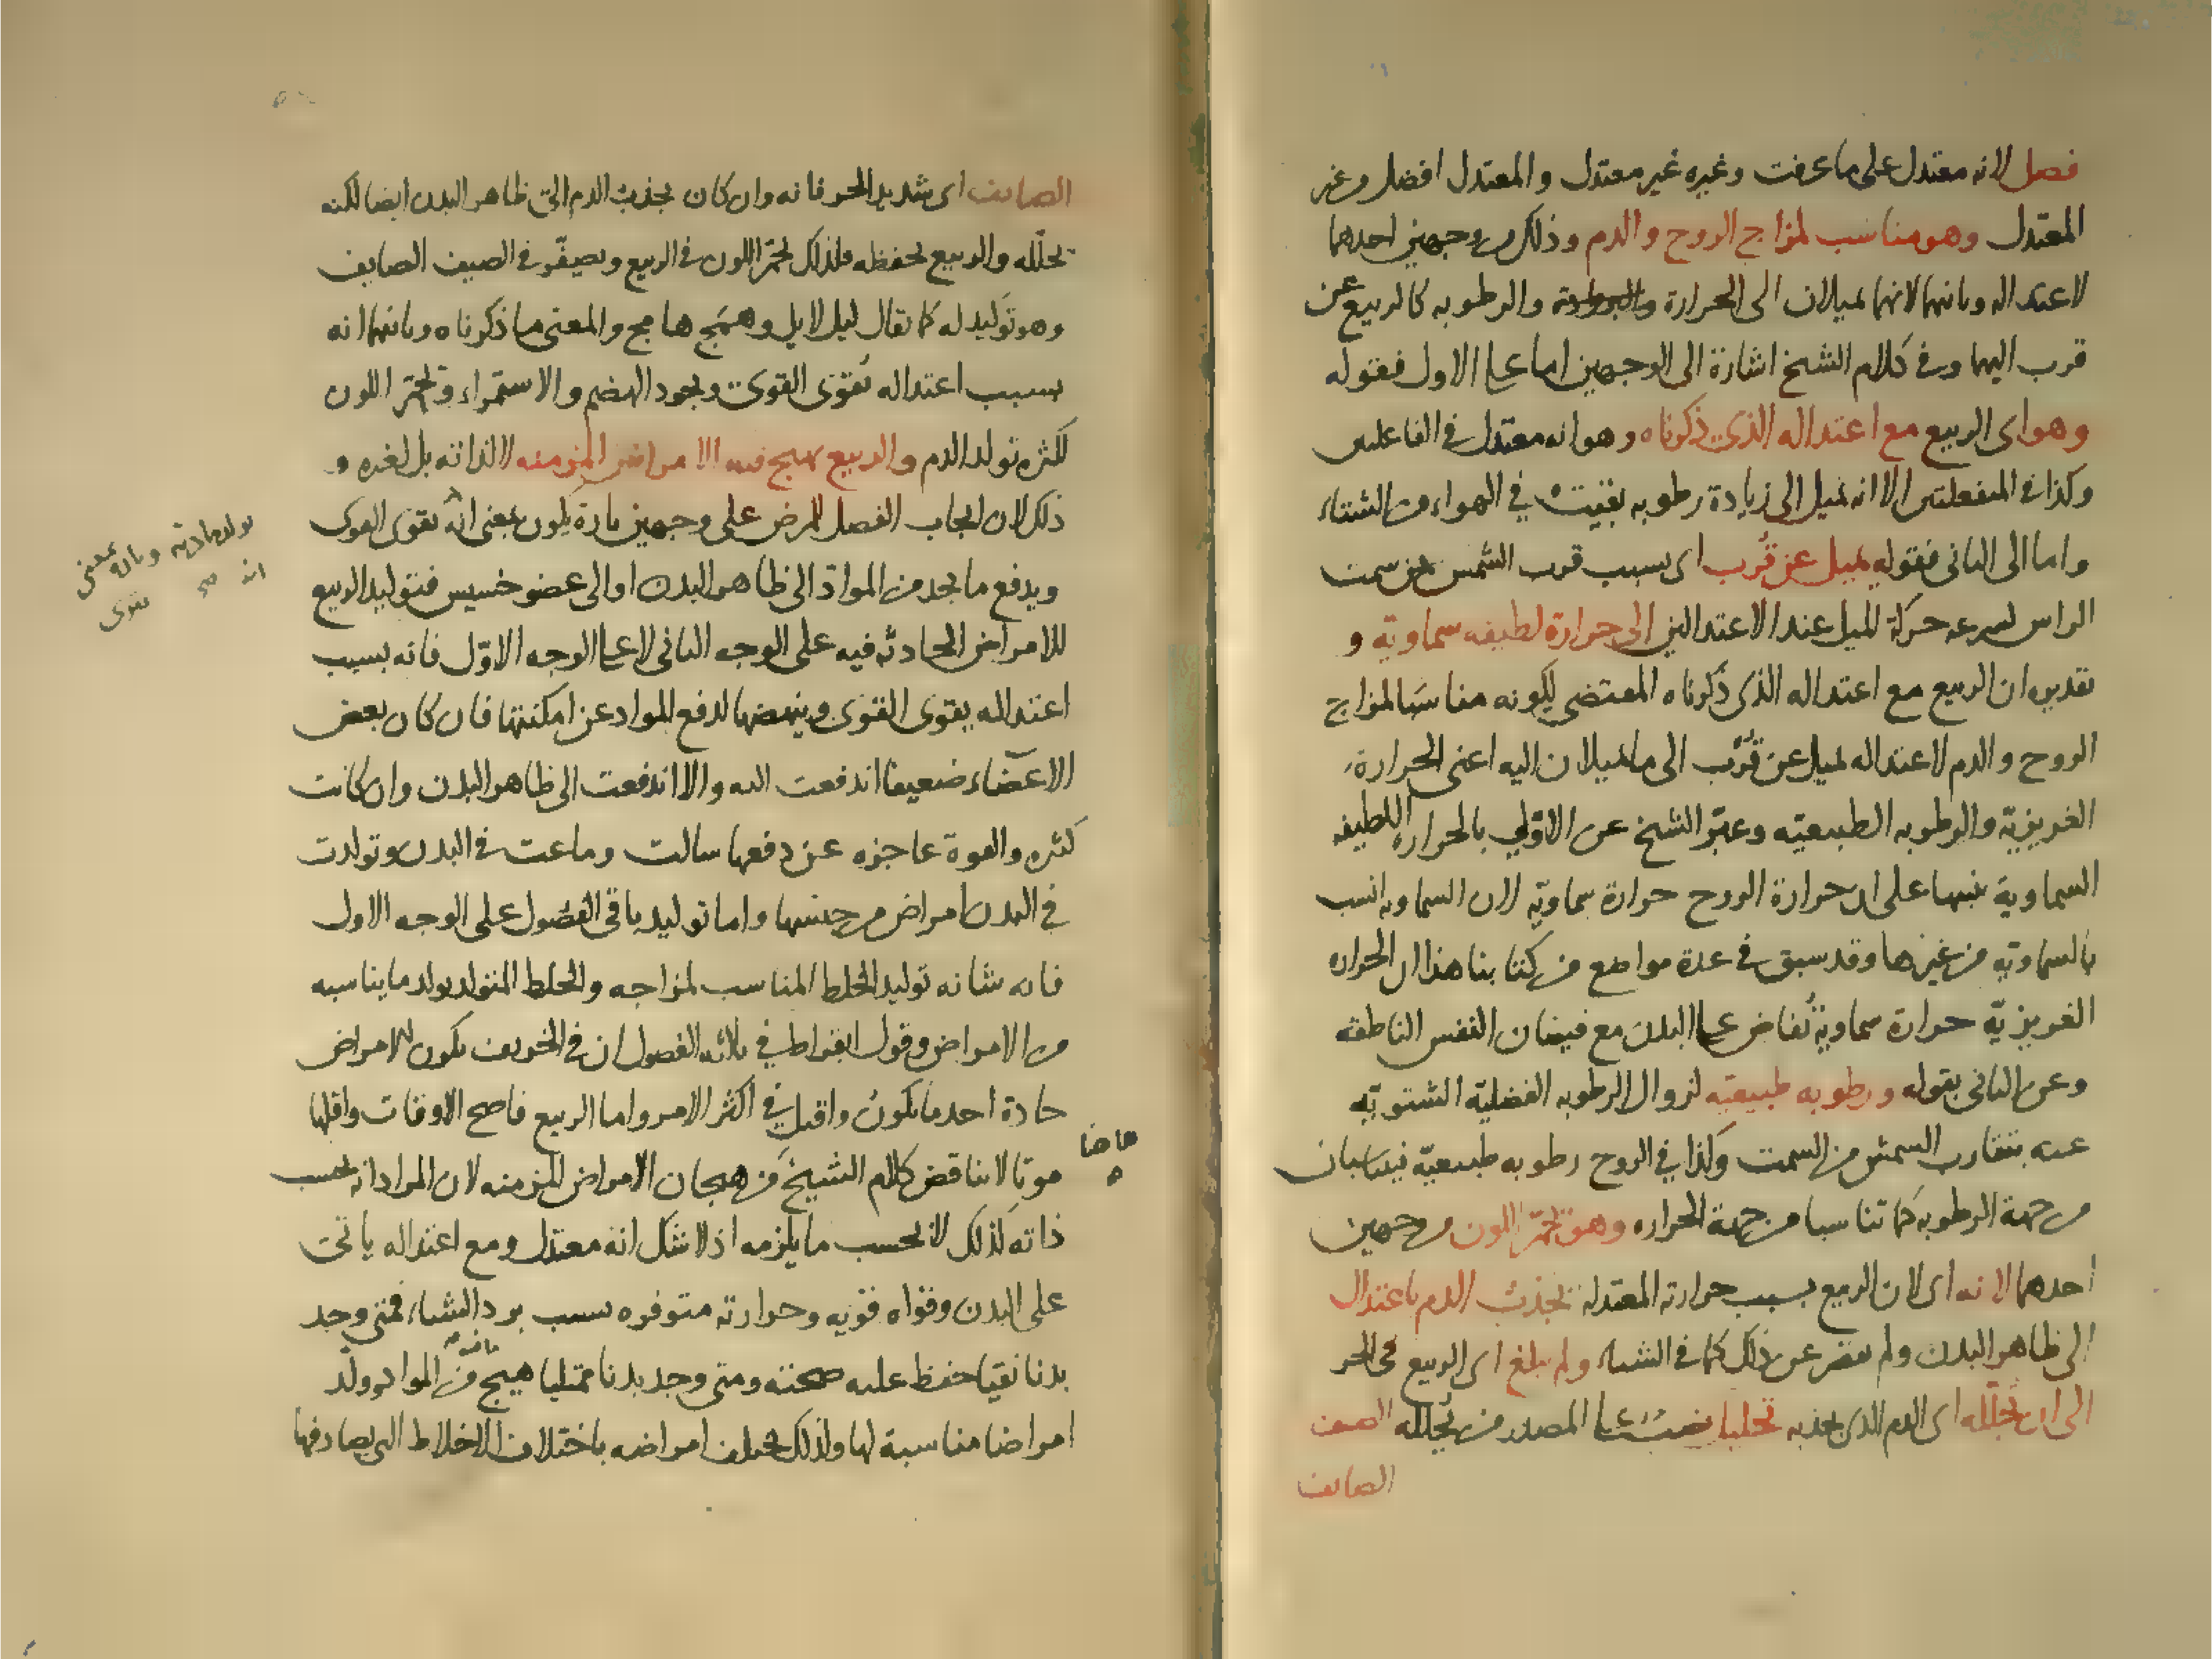 فصل لانه معتدل على ما عرفت وغيره غير معتدل والمعتدل افضل من غير
المعتدل وهو مناسب لمزاج الروح والدم وذلك من وجهين احدهما
لاعتداله وثانيهما لانهما يميلان الى الحرارة والرطوبه كالربيع عن
قرب اليهما وفي كلام الشيخ اشارة الى الوجهين اما على الاول فقوله
وهو اى الربيع مع اعتداله الذى ذكرناه وهو انه معتدل في الفاعلتين
وكذا في المنفعلتين الا انه يميل الى زيادة رطوبه بقيت في الهواء من الشتاء
واما الى الثانى فقوله يميل عن قُرب اى بسبب قرب الشمس من سمت
الراس لسرعه حركة الميل عند الاعتدالين الى حرارة لطيفه سماويّه و
تقديره ان الربيع مع اعتداله الذى ذكرناه المقتضى لكونه مناسبًا لمزاج
الروح والدم لاعتداله يميل عن قُرب الى ما يميلان اليه اعنى الحرارة
الغريزيّة والرطوبه الطبيعيّه وعبّر الشيخ عن الاولى بالحرارة اللطيفه
السماوية تنبيها على ان حرارة الروح حرارة سماويّه لان السماويه انسب
بالسماويّه من غيرها وقد سبق في عدة مواضع من كتابنا هذا ان الحراره
الغريزيّه حرارة سماويّة تُفاض على البدن مع فيضان النفس الناطقه
وعن الثانى بقوله ورطوبه طبيعيّه لزوال الرطوبه الفضليّة الشتويّه
عنه بتقارب الشمس من السمت وكذا في الروح رطوبه طبيعيّه فيتناسبان
من جهة الرطوبه كما تناسبا من جهة الحراره وهو يحمّر اللون من وجهين
احدهما لانه اى لان الربيع بسبب حرارته المعتدله يجذب الدم باعتدال
الى ظاهر البدن ولم يقصر عن ذلك كما في الشتاء ولم يبلغ اى الربيع في الحر
الى ان يحلّله اى الدم الذى يجذبه تحليلا نصب على المصدر من يُحلله الصيف
الصايف
الصايف اى شديد الحر فانه وان كان يجذب الدم الى ظاهر البدن ايضا لكنه
يحلّله والربيع يحفظه فلذلك يحمّر اللون في الربيع ويصفّر في الصيف الصايف
وهو توكيد له كما يقال ليل لايل وهمج هامج والمعنى ما ذكرناه وثانيهما انه
بسبب اعتداله تقوى القوى ويجود الهضم والاستمراء ويحمّر اللون
لكثره تولد الدم والربيع يهيج فيه الامراض المزمنه لا لذاته بل لغيره و
ذلك لان ايجاب الفصل للمرض على وجهين تارة يكون بمعنى انه يقوى القوى
يولد مادته وتارة بمعنى
انه يقوى صح
ويدفع ما يجد من الموادّ الى ظاهر البدن او الى عضو خسيس فتوليد الربيع
للامراض الحادثه فيه على الوجه الثانى لا على الوجه الاوّل فانه بسبب
اعتداله يقوى القوى وينهضها لدفع المواد عن امكنتها فان كان بعض
الاعضاء ضعيفا اندفعت اليه والا اندفعت الى ظاهر البدن وان كانت
كثيره والقوة عاجزه عن دفعها سالت وماعت في البدن وتولدت
في البدن امراض من جنسها واما توليد باقى الفصول على الوجه الاول
فانه شانه توليد الخلط المناسب لمزاجه والخلط المتولد يولد ما يناسبه
من الامراض وقول ابقراط في ثالثه الفصول ان في الخريف يكون الامراض
حادة احد ما يكون واقتل في اكثر الامر واما الربيع فاصح الاوقات واقلها
هاهنا
موتا لا يناقض كلام الشيخ من هيجان الامراض المزمنه لان المراد انه بحسب
ذاته كذلك لا بحسب ما يلزمه اذ لا شك انه معتدل ومع اعتداله ياتى
على البدن وقواه قويه وحرارته متوفره بسبب برد الشتاء فمتى وجد
بدنا نقيا حفظ عليه صحته ومتى وجد بدنا ممتليا هيج ما فيه من المواد وولّد
امراضا مناسبة لها ولذلك يختلف امراضه باختلاف الاخلاط التى يصادفها